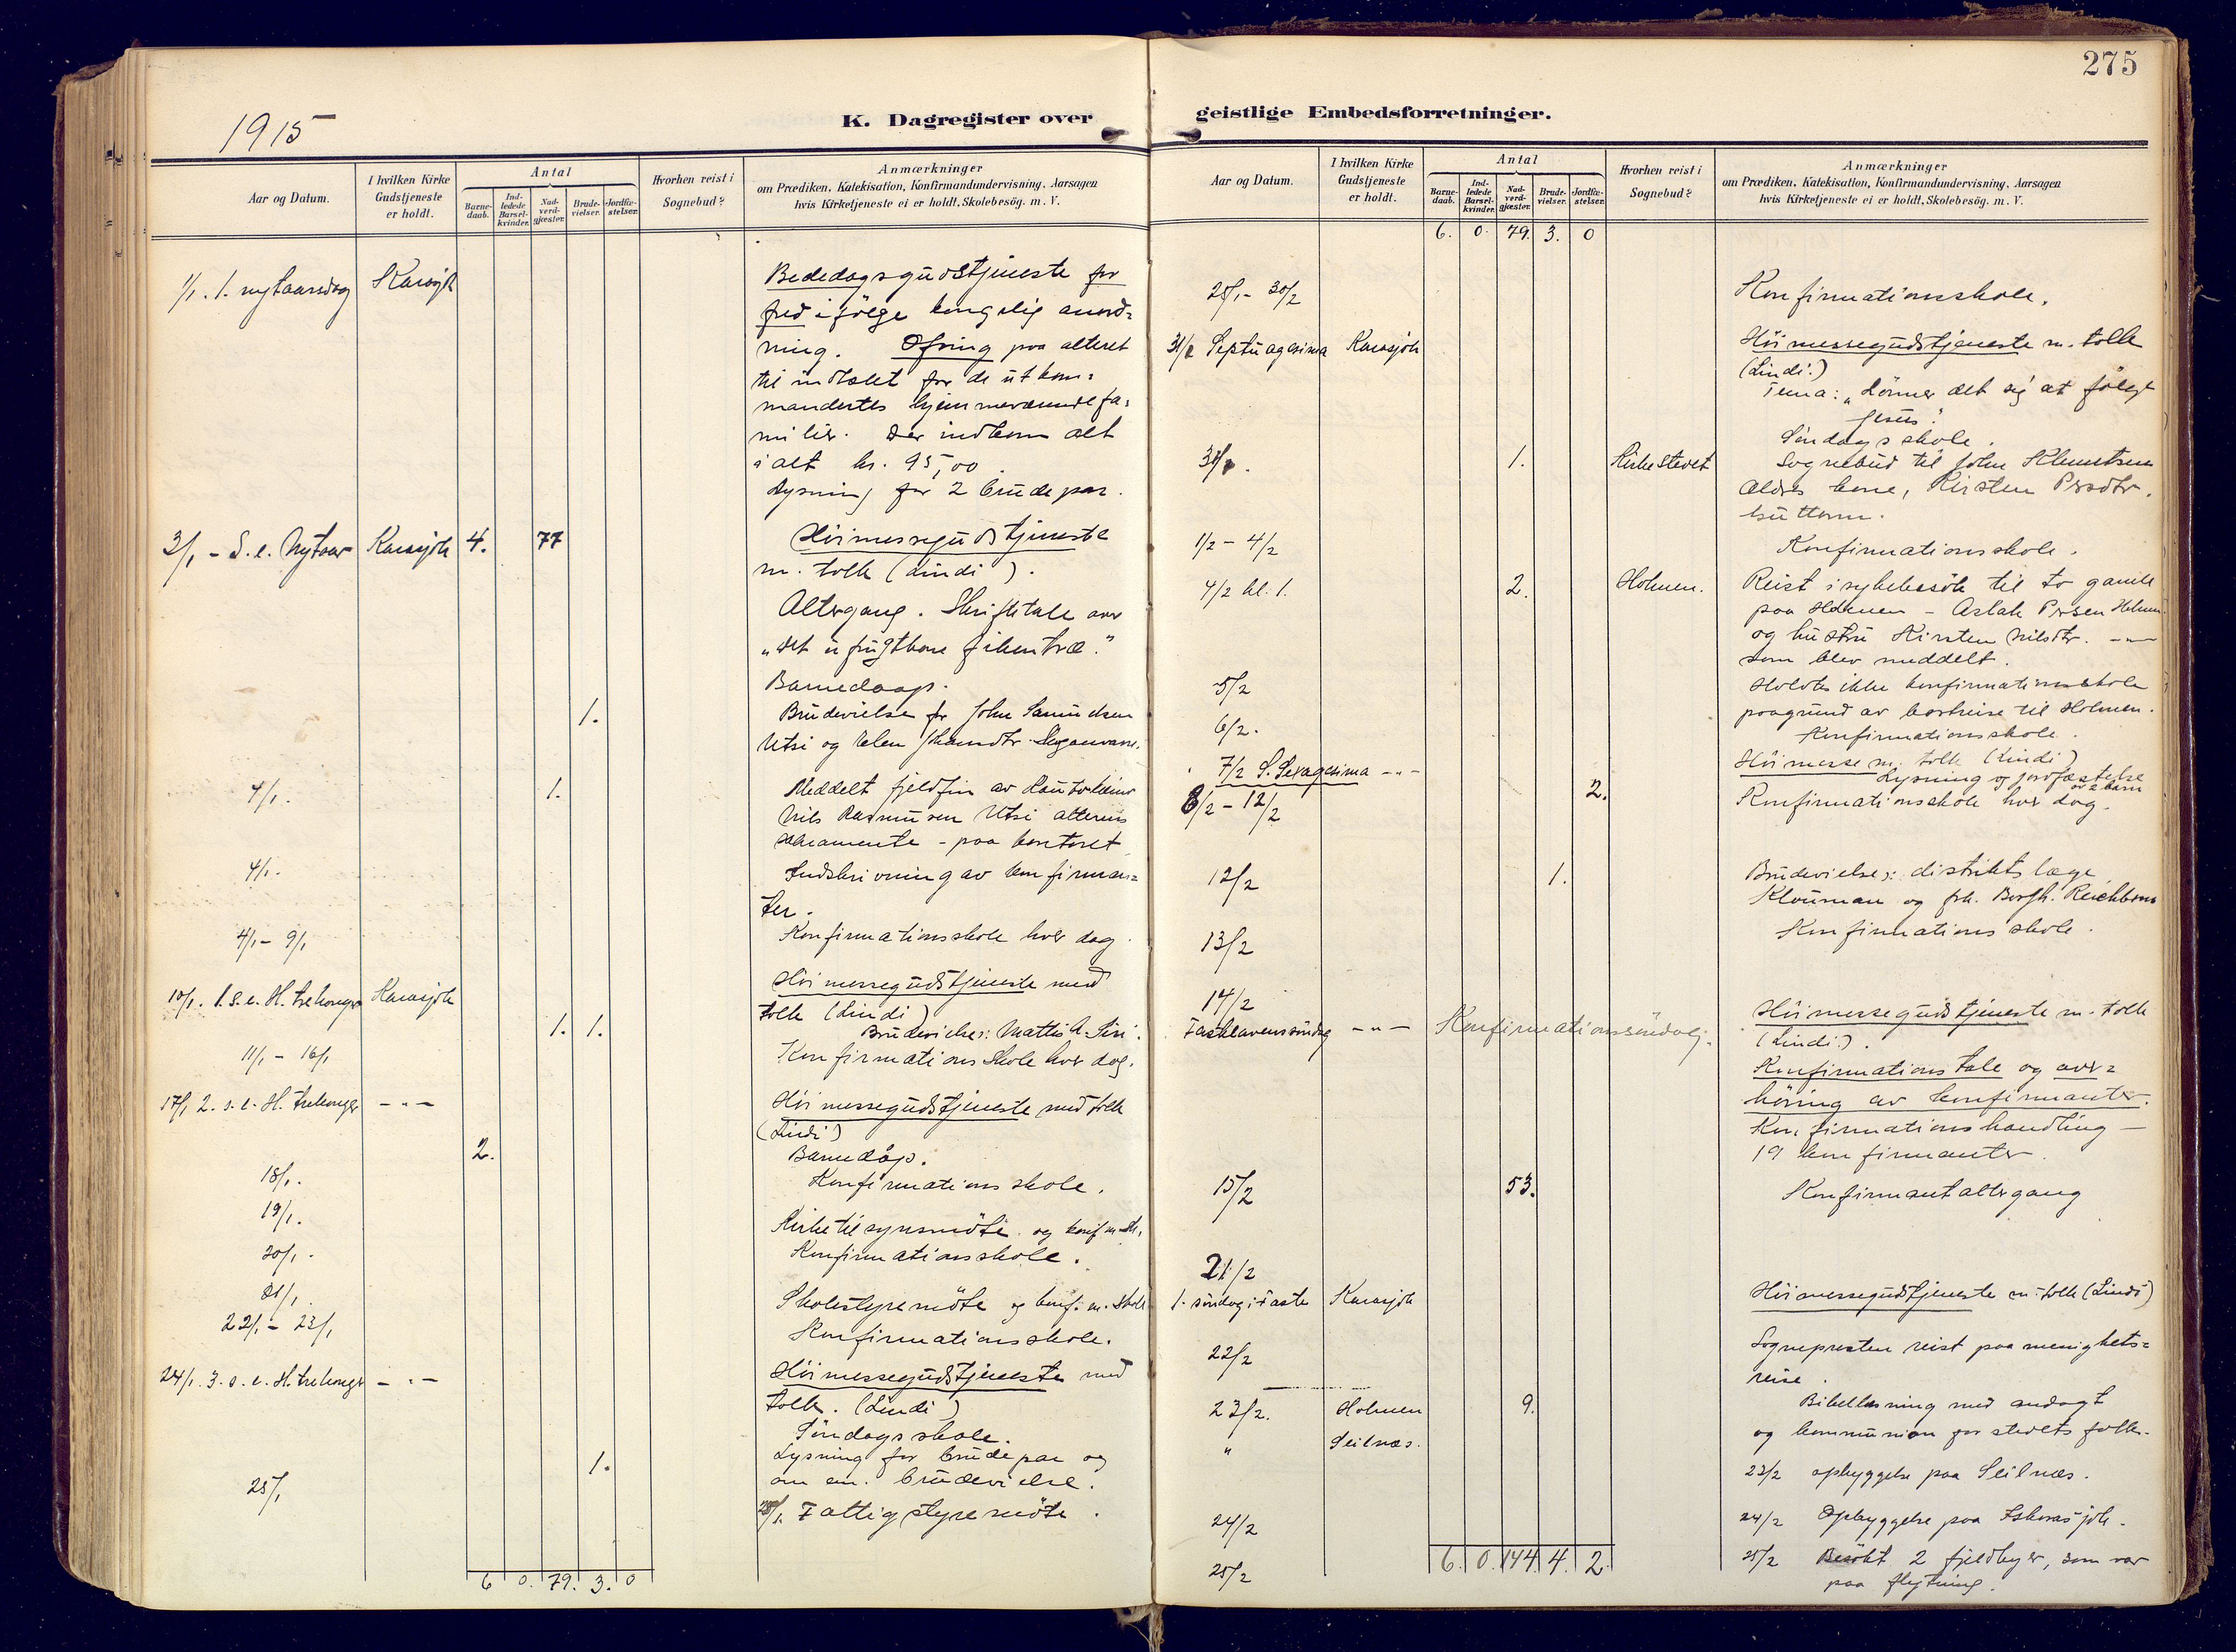 275
1915
K. Dagregister over
geistlige Embedsforretninger.
Aar og Datum.
I hvilken Kirke Gudstjeneste er holdt.
Antal
Barne-daab.
Ind-ledede Barsel-kvinder.
Nad-verd-gjæster.
Brude-vielser.
Jordfæ-stelser.
Hvorhen reist i Sognebud?
Anmærkninger
om Prædiken, Katekisation, Konfirmandundervisning, Aarsagen
hvis Kirketjeneste ei er holdt, Skolebesøg. m. V.
1/1. 1. nytaarsdag Karasjok Bededagsgudstjeneste for
fred ifölge kongelig anord=
ning. Ofring paa alteret
til indtekt for de utkom=
mandertes hjemmeværende fa=
milier. Der indkom alt
i alt kr. 95,00.
Lysning for 2 brudepar.
3/1 - S. e. Nytaar Karasjok 4. 77 Höimessegudstjeneste
m. tolk (Lindi).
Altergang. Skriftetale over
"det ufrugtbare fikentræ."
Barnedaap.
1. Brudevielse for John Samuelsen
Utsi og Elen
4/1. 1. Meddelt fjeldfin av Kautokeino
Nils Rasmusen Utsi alterens
sakramente - paa kontoret
4/1. Indskrivning av konfirman=
ter.
4/1 - 9/1 Konfirmationsskole hver dag.
10/1. 1. S. e. H. trekonger Karasjok Höimessegudstjeneste med
tolk (Lindi)
1. 1. Brudevielse: Mattis A. Siri.
11/1 - 16/1 Konfirmationsskole hver dag.
17/1 2. s. e. H. trekonger -"- Höimessegudstjeneste med tolk
(Lindi)
2. Barnedåp.
18/1. Konfirmationsskole.
19/1. Kirketilsynsmöte og konf. m. sk.
20/1. Konfirmationsskole.
21/1 Skolestyremöte og konf. m. skole
22/1 - 23/1 Konfirmationsskole.
24/1. 3. s. e. H. trekonger -"- Höimessegudstjeneste med
tolk. (Lindi)
Söndagsskole.
1. Lysning for brudepar og
om em. brudevielse.
25/1 Fattigstyremöte.
6 0. 79. 3. 0
Aar og Datum.
I hvilken Kirke Gudstjeneste er holdt.
Antal
Barne-daab.
Ind-ledede Barsel-kvinder.
Nad-verd-gjæster.
Brude-vielser.
Jordfæ-stelser.
Hvorhen reist i Sognebud?
Anmærkninger
om Prædiken, Katekisation, Konfirmandundervisning, Aarsagen
hvis Kirketjeneste ei er holdt, Skolebesøg. m. V.
6. 0. 79. 3. 0
25/1 - 30/2 Konfirmationsskole.
31/1 Septuagesima Karasjok Höimessegudstjeneste m. tolk
(Lindi.)
Tema: "Lönner det sig at fölge
Jesus".
Söndagsskole.
31/1. 1. Kirkestedet Sognebud til John Klemetsen
ældres kone, Kirsten Prsdtr.
1/2 - 4/2 Konfirmationsskole.
4/2 kl. 1. 2. Holmen. Reist i sykebesök til to gamle
paa Holmen - Aslak Persen Holmen.
og hustru Kirsten Nilsdtr. -"-
som blev meddelt.
5/2 Holdtes ikke konfirmationsskole
paagrund av bortreise til Holmen.
6/2. Konfirmationsskole.
7/2 S. Sexagesima -"- Höimesse m. tolk (Lindi)
2. Lysning og jordfæstelse
av 2 barn
8/2 - 12/2 Konfirmationsskole hver dag.
12/2 1. Brudevielse: distriktslæge
Klouman og frk. Borgh.
13/2 Konfirmationsskole.
14/2
Fastelavenssöndag -"- Konfirmationssöndag. Höimessegudstjeneste m. tolk
(Lindi).
Konfirmationstale og over=
höring av konfirmanter.
Konfirmationshandling -
19 konfirmanter.
15/2 53. Konfirmantaltergang
21/2
1. söndag i Faste Karasjok Höimessegudstjeneste m. tolk (Lindi)
22/2 Sognepresten reist paa menighets=
reise.
23/2. Holmen 9. Bibellæsning med andagt
og kommunion for stedets folk.
" Seilnæs. 23/2 opbyggelse paa Seilnæs.
24/2 24/2 Opbyggelse paa Iskurasjok.
25/2 25/2 Besökt 2 fjeldbyer, som var
paa flytning.
6. 0. 144. 4. 2.